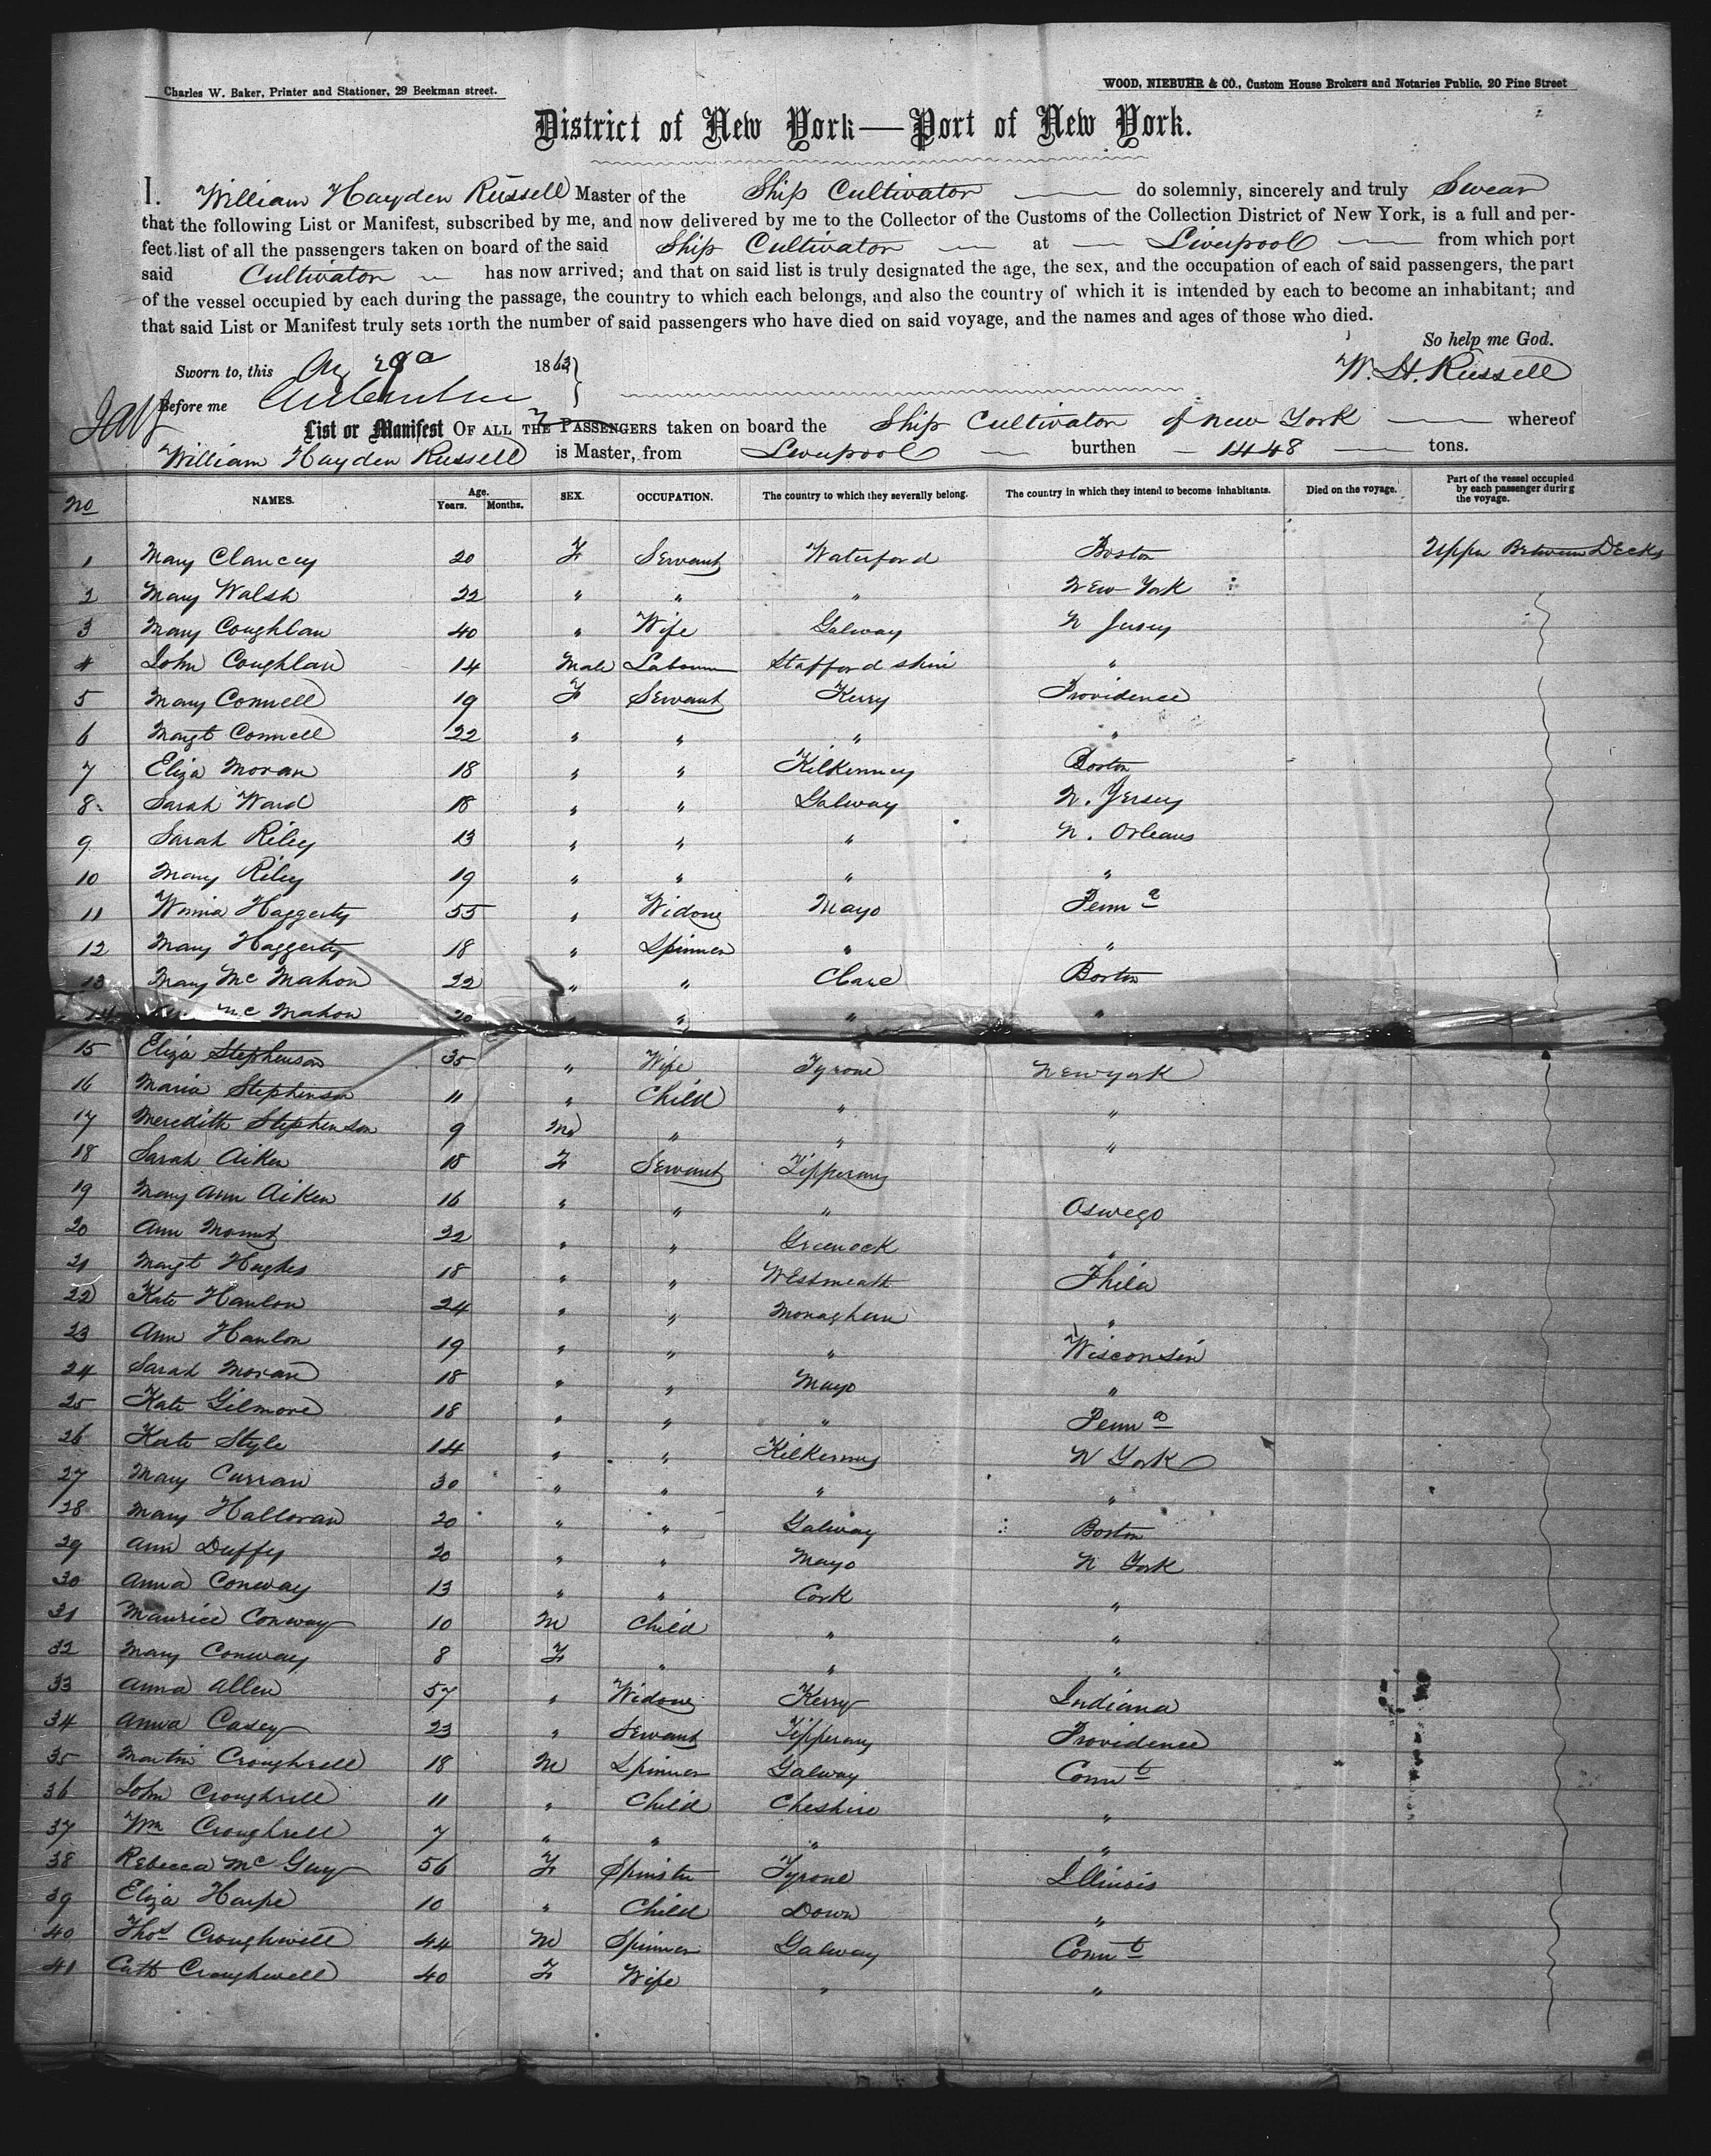 Charles W. Baker, Printer and Stationer, 29 Beekman street.
WOOD, NIEBUHR & CO., Custom House Brokers and Notaries Public, 20 Pine Street
District of New York—Port of New York.
I. William Hayden Russell Master of the Ship Cultivator do solemnly, sincerely and truly Swear
that the following List or Manifest, subscribed by me, and now delivered by me to the Collector of the Customs of the Collection District of New York, is a full and per-
fect list of all the passengers taken on board of the said Ship Cultivator at Liverpool from which port
said Cultivator has now arrived; and that on said list is truly designated the age, the sex, and the occupation of each of said passengers, the part
of the vessel occupied by each during the passage, the country to which each belongs, and also the country of which it is intended by each to become an inhabitant; and
that said List or Manifest truly sets forth the number of said passengers who have died on said voyage, and the names and ages of those who died.
So help me God.
Sworn to, this 1863
W. H. Russell
Before me
List or Manifest OF ALL THE PASSENGERS taken on board the Ship Cultivator of New York whereof
William Hayden Russell is Master, from Liverpool burthen 1448 tons.
No NAMES. Age. Years. Months. SEX. OCCUPATION. The country to which they severally belong. The country in which they intend to become inhabitants. Died on the voyage. Part of the vessel occupied by each passenger during the voyage.
1 Mary Clancey 20 F Servant Waterford Boston Upper Between Decks
2 Mary Walsh 22 " " " New York
3 Mary Coughlan 40 " Wife Galway N Jersey
4 John Coughlan 14 Male Labourer Staffordshire "
5 Mary Connell 19 F Servant Kerry Providence
6 Margt Connell 22 " " " "
7 Eliza Moran 18 " " Kilkenney Boston
8 Sarah Ward 18 " " Galway N. Jersey
9 Sarah Riley 13 " " " N. Orleans
10 Mary Riley 19 " " " "
11 Haggerty 55 " Widow Mayo Penna
12 Mary Haggerty 18 " Spinner " "
13 Mary McMahon 22 " " Clare Boston
14 McMahon 20 " " "
15 Eliza Stephenson 35 " Wife Tyrone New york
16 Maria Stephenson 11 " Child " "
17 Meredith Stephenson 9 M " " "
18 Sarah Aiken 18 F Servant Tipperary
19 Mary Ann Aiken 16 " " " Oswego
20 Ann 22 " " Greenock "
21 Margt Hughes 18 " " Westmeath Phila
22 Kate Hanlon 24 " " Monaghan "
23 Ann Hanlon 19 " " " Wisconsin
24 Sarah Moran 18 " " Mayo "
25 Kate Gilmore 18 " " " Penna
26 Kate Style 14 " " Kilkenny N York
27 Mary Curran 30 " " " "
28 Mary Halloran 20 " " Galway Boston
29 Ann Duffy 20 " " Mayo N York
30 Anna Conway 13 " " Cork "
31 Maurice Conway 10 M Child " "
32 Mary Conway 8 F " " "
33 Anna Allen 57 " Widow Kerry Indiana
34 Anna Casey 23 " Servant Tipperary Providence
35 Martin Croughwell 18 M Spinner Galway Connt
36 John Croughwell 11 " Child Cheshire "
37 Wm Croughwell 7 " " " "
38 Rebecca McGuy 56 F Spinster Tyrone Illinois
39 Eliza Harpe 10 " Child Down "
40 Thos Croughwell 44 M Spinner Galway Connt
41 Cath Croughwell 40 F Wife " "